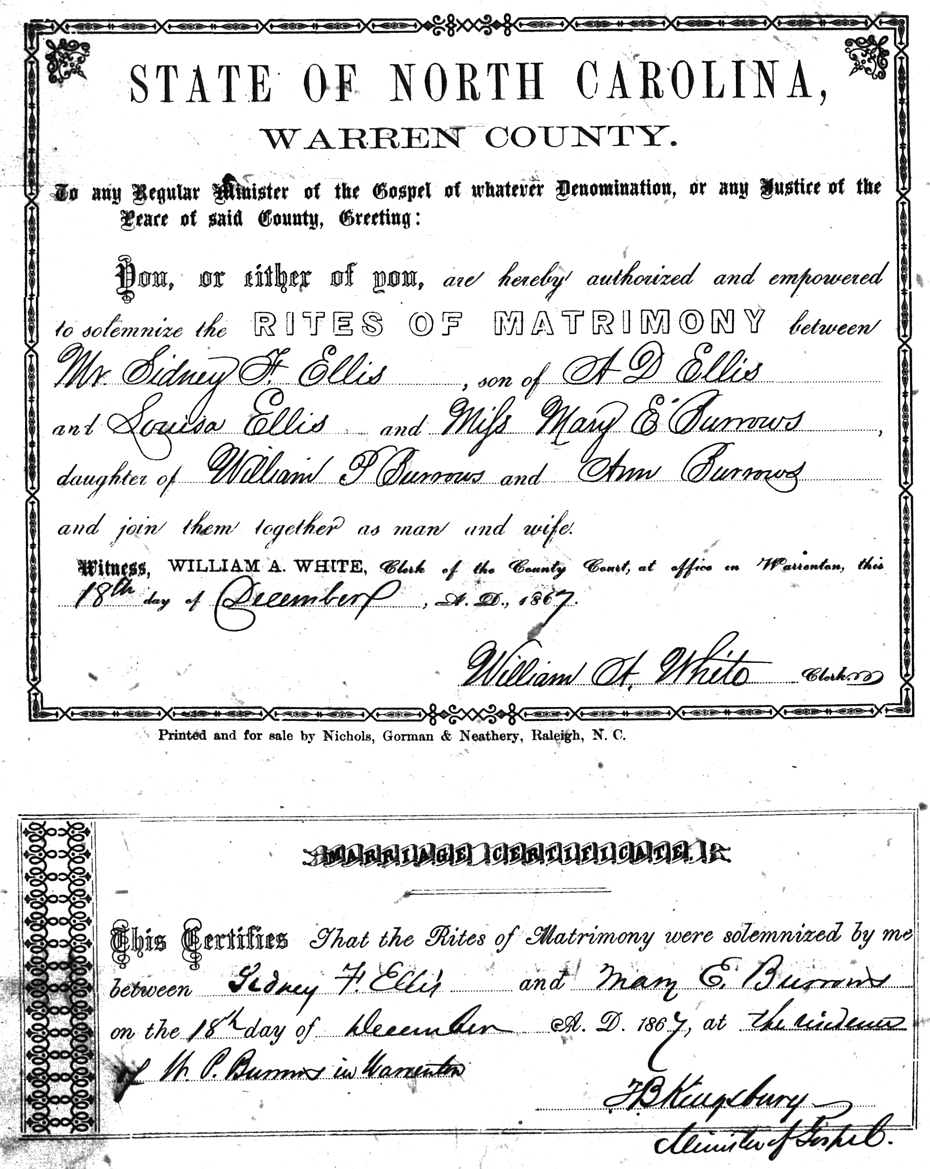 STATE OF NORTH CAROLINA,
WARREN COUNTY.
To any Regular Minister of the Gospel of whatever Denomination, or any Justice of the
Peace of said County, Greeting:
You, or either of you, are hereby authorized and empowered
to solemnize the RITES OF MATRIMONY between
Mr. Sidney F. Ellis, son of A D Ellis
and Louisa Ellis and Miss Mary E Burrows,
daughter of William P Burrows and Ann Burrows
and join them together as man and wife.
Witness, WILLIAM A. WHITE, Clerk of the County Court, at office in Warrenton, this
18th day of December, A. D., 1867.
William A. White Clerk
Printed and for sale by Nichols, Gorman & Neathery, Raleigh, N. C.
MARRIAGE CERTIFICATE.
This Certifies That the Rites of Matrimony were solemnized by me
between Sidney F. Ellis and Mary E. Burrows
on the 18th day of December A. D. 1867, at the residence
of W. P. Burrows in Warrenton
T B Kingsbury
Minister of Gospel.